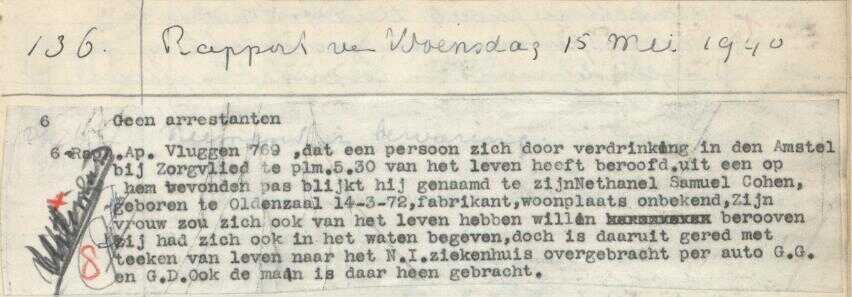 136. Rapport van Woensdag 15 Mei 1940
6 Geen arrestanten
6 Rap. Ap. Vluggen 769 ,dat een persoon zich door verdrinking in den Amstel
bij Zorgvlied te plm.5.30 van het leven heeft beroofd.uit een op
hem bevonden pas blijkt hij genaamd te zijnNethanel Samuel Cohen,
geboren te Oldenzaal 14-3-72,fabrikant,woonplaats onbekend,Zijn
vrouw zou zich ook van het leven hebben willen berooven
zij had zich ook in het waten begeven,doch is daaruit gered met
teeken van leven naar het N.I.ziekenhuis overgebracht per auto G.G.
en G.D.Ook de man is daar heen gebracht.
8